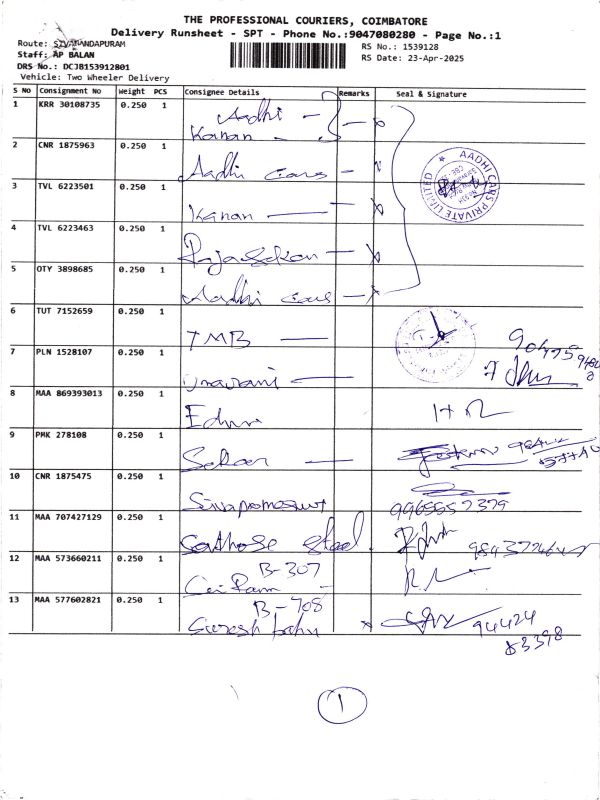 THE PROFESSIONAL COURIERS, COIMBATORE
Delivery Runsheet - SPT - Phone No.:9047080280 - Page No.:1
Route: SIVANANDAPURAM
RS No.: 1539128
Staff: AP BALAN
RS Date: 23-Apr-2025
DRS No.: DCJB153912801
Vehicle: Two Wheeler Delivery
S No Consignment No Weight PCS Consignee Details Remarks Seal & Signature
1 KRR 30108735 0.250 1 Aadhi
Kanan
2 CNR 1875963 0.250 1 Aadhi Cars
AADHI CARS PRIVATE LIMITED
3 TVL 6223501 0.250 1 Kanan
4 TVL 6223463 0.250 1 Rajasekar
5 OTY 3898685 0.250 1 Aadhi Cars
6 TUT 7152659 0.250 1 TMB
7 PLN 1528107 0.250 1
8 MAA 869393013 0.250 1
9 PMK 278108 0.250 1
10 CNR 1875475 0.250 1
9965557379
11 MAA 707427129 0.250 1 Steel
12 MAA 573660211 0.250 1 B-307
Sai Ram
13 MAA 577602821 0.250 1 B-708
Suresh babu
94424
83398
1